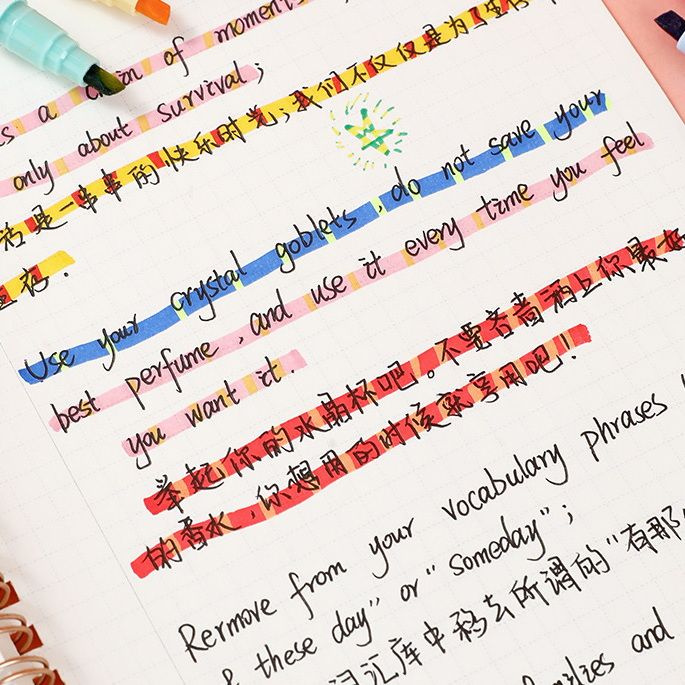 s a chain of moments
only about survival;
活是一串串的快乐时光;我们不仅仅是为了生存
生存.
Use your crystal goblets, do not save your
best perfume, and use it every time you feel
you want it.
举起你的水晶杯吧。不要吝啬洒上你最好
的香水,你想用的时候就享用吧!
Rermove from your vocabulary phrases
these day" or "someday";
词汇库中移去所谓的"有那
families and